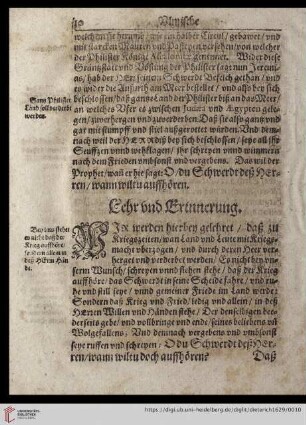 Blutige
welchem sie herumb, wie ein halber Circul / gebawet / und
mit starcken Mauren und Pasteyen versehen / von welcher
der Philister Könige
Wider diese
Grentzstätt und Vöstung der Philister sagt nun Jeremias
/ hab der HErr seinem Schwerdt Befelch gethan / und
es wider die Anfurth am Meer bestellet / und also bey sich
beschlossen / daß gantze Land der Philister biß an das Meer /
an welches User es zwischen Juda und Egypten gelegen
/ zuverhergen und zuverderben Daß sie also gantz und
gar mit stumpff und stiel außgerottet würden. Und demnach
weil der HERR diß bey sich beschlossen / seye all ihr
Seufftzen und wehklagen / ihr schreyen und wimmern
nach dem Frieden umbsonst und vergebens. Das wil der
Prophet / wañ er hie sage: O du Schwerdt deß Herren
/ wann wiltu auffhören.
Gantz Philister
Land soll verderbt
werden.
Lehr und Erinnerung.
WIr werden hierbey gelehret / daß zu
Kriegszeiten / wan Land und Leute mit Kriegsmacht
uberzogen / und durch deren Heer verherget
und verderbet werden / Es nicht bey unserm
Wunsch / schreyen unnd flehen stehe / daß der Krieg
auffhöre / das Schwerdt in seine Scheide fahre / und ruhe
und still seye / unnd gemeiner Friede im Land werde:
Sondern daß Krieg und Fried / ledig und allein / in deß
HErren Willen und Händen stehe / Der denselbigen beederseits
gebe / und vollbringe und ende / seines beliebens uñ
Wolgefallens / Und demnach vergebens und umbsonst
seye ruffen und schreyen / O du Schwerdt deß HErren
/ wann wiltu doch auffhören?
Daß
Bey uns stehet
es nicht daß der
Krieg auffhöre /
sondern allein in
deß HErrn Hände.
UNIVERSITÄTS-
BIBLIOTHEK
HEIDELBERG
https://digi.ub.uni-heidelberg.de/diglit/dieterich1629/0010